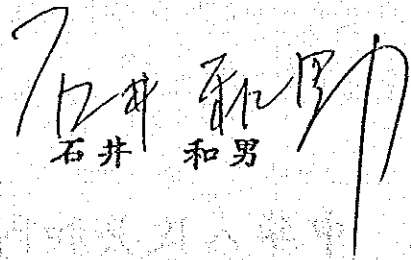 石井 和男
石井 和男